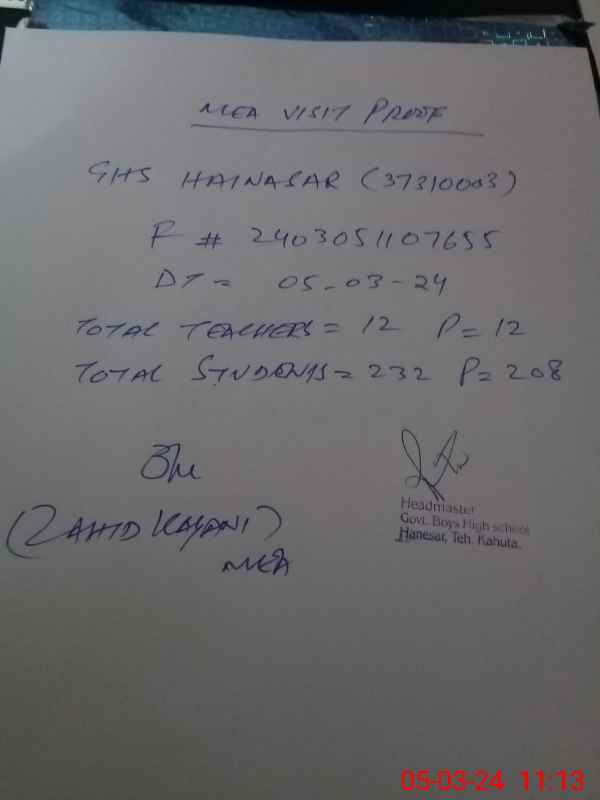 MEA VISIT PROOF
GHS HAINASAR (37310003)
F # 2403051107655
DT = 05-03-24
TOTAL TEACHERS = 12 P = 12
TOTAL STUDENTS = 232 P = 208
(ZAHID KAYANI)
MEA
Headmaster
Govt. Boys High school
Hanesar, Teh. Kahuta.
05-03-24 11:13